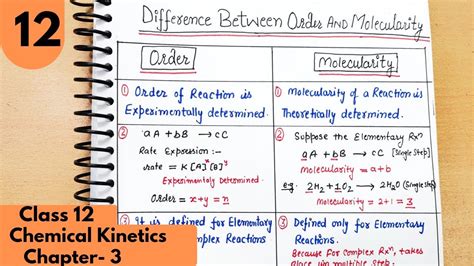 12
Difference Between Order And Molecularity
Order
① Order of Reaction is
Experimentally determined.
② aA + bB → cC
Rate Expression :-
rate = K[A]ˣ[B]ʸ
Experimentally Determined.
Order = x+y = n
③ It is defined for Elementary
Complex Reactions
Molecularity
① Molecularity of a Reaction is
Theoretically determined.
② Suppose the Elementary Rxⁿ
aA + bB → cC [Single Step]
molecularity = a+b
e.g. 2H₂ + 1O₂ → 2H₂O (Single Step)
Molecularity = 2+1 = 3
③ Defined only for Elementary
Reactions.
Because for Complex Rxⁿ, takes
place in multiple
Class 12
Chemical Kinetics
Chapter- 3